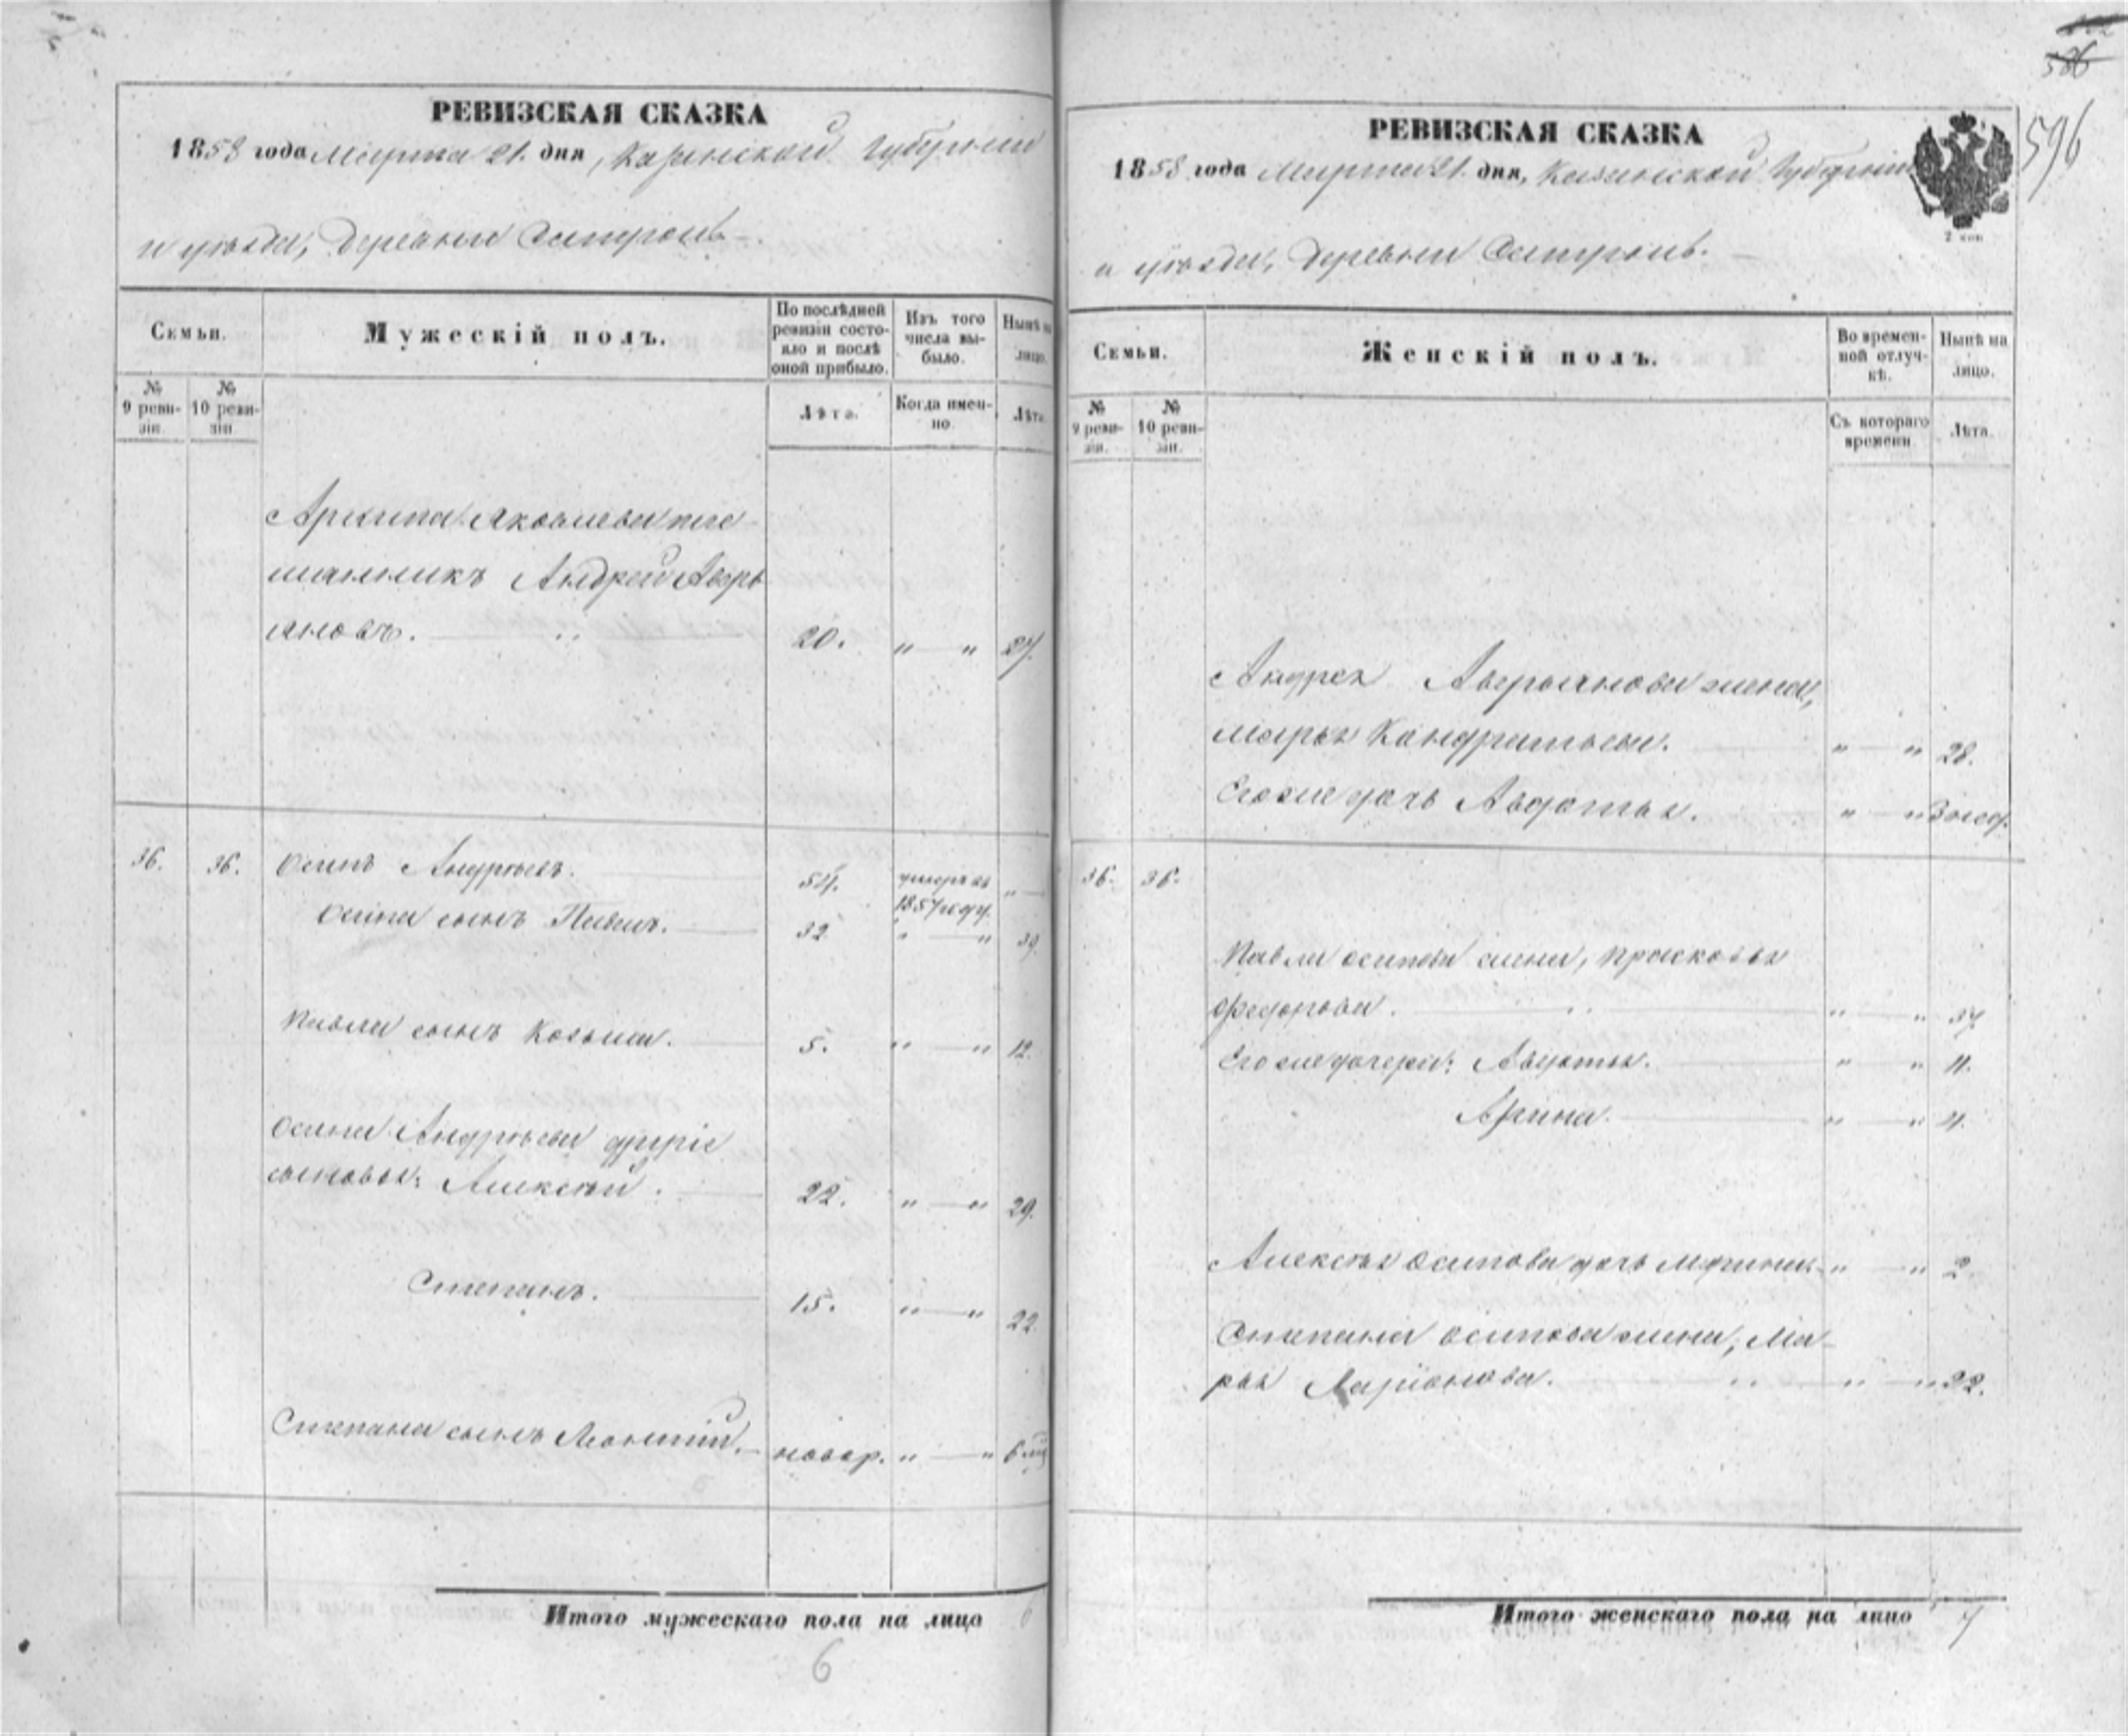 РЕВИЗСКАЯ СКАЗКА
1858 года Марта 21. дня, Казанской губерніи
и уѣзда, деревни
Семьи.
Мужескій полъ.
По послѣдней ревизіи состояло и послѣ оной прибыло.
Изъ того числа выбыло.
Нынѣ на лицо.
№ 9 ревизіи.
№ 10 ревизіи.
Лѣта.
Когда именно.
Лѣта.
Архипа Яковлева пле-
мянникъ Андрей Аверь
яновъ. 20. " " 27.
36. 36. Осипъ Андреевъ. 54. умеръ въ 1857 году. "
Осипа сынъ Павелъ. 32 " " 39.
Павла сынъ Козьма. 5. " " 12.
Осипа Андреева другіе
сыновья: Алексѣй. 22. " " 29.
Степанъ. 15. " " 22.
Степана сынъ Леонтій. новор. " " 6 м
Итого мужескаго пола на лицо
6
586
596
РЕВИЗСКАЯ СКАЗКА
1858 года Марта 21. дня, Казанской Губерніи
2 коп
и уѣзда, деревни
Семьи.
Женскій полъ.
Во временной отлучкѣ.
Нынѣ на лицо.
№ 9 ревизіи.
№ 10 ревизіи.
Съ котораго времени.
Лѣта.
Андрея Аверьянова жена,
Марья Кондратьева. " " 28.
Его же дочь Авдотья. " " 3 нед.
36. 36.
Павла Осипова жена, Прасковья
Федорова. " " 37
Его же дочери: Авдотья. " " 11.
Арина. " " 4.
Алексѣя Осипова дочь " " 2.
Степана Осипова жена, Ма-
рья Ларіонова. " " 22.
Итого женскаго пола на лицо 7